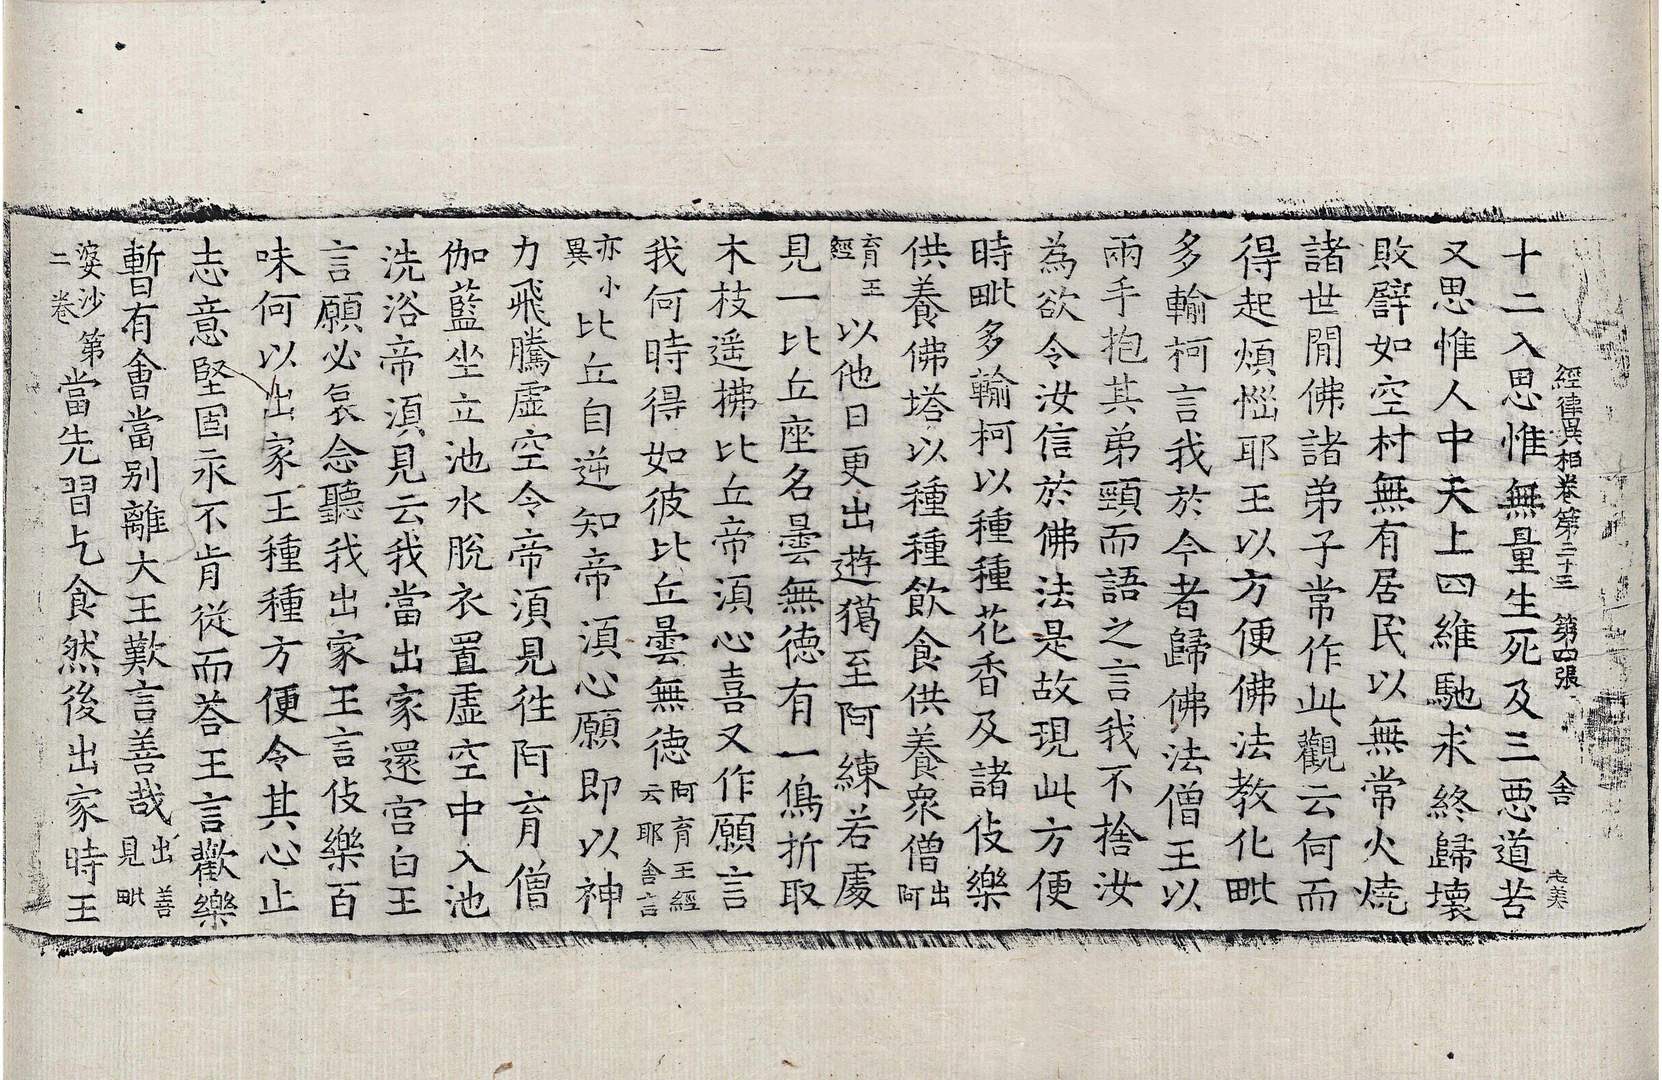 經律異相卷第三十三 第四張 舍 志美
十二入思惟無量生死及三惡道苦
又思惟人中天上四維馳求終歸壞
敗譬如空村無有居民以無常火燒
諸世閒佛諸弟子常作此觀云何而
得起煩惱耶王以方便佛法教化毗
多輸柯言我於今者歸佛法僧王以
兩手抱其弟頸而語之言我不捨汝
為欲令汝信於佛法是故現此方便
時毗多輸柯以種種花香及諸伎樂
供養佛塔以種種飲食供養衆僧出阿
育王經以他日更出遊獦至阿練若處
見一比丘座名曇無德有一鳥折取
木枝遥拂比丘帝湏心喜又作願言
我何時得如彼比丘曇無德阿育王經云耶舍言
亦小異比丘自逆知帝湏心願即以神
力飛騰虛空令帝湏見徃阿育僧
伽藍坐立池水脫衣置虛空中入池
洗浴帝湏見云我當出家還宮白王
言願必哀念聽我出家王言伎樂百
味何以出家王種種方便令其心止
志意堅固永不肯從而荅王言歡樂
暫有會當别離大王歎言善哉出善見毗
婆沙第二卷當先習乞食然後出家時王